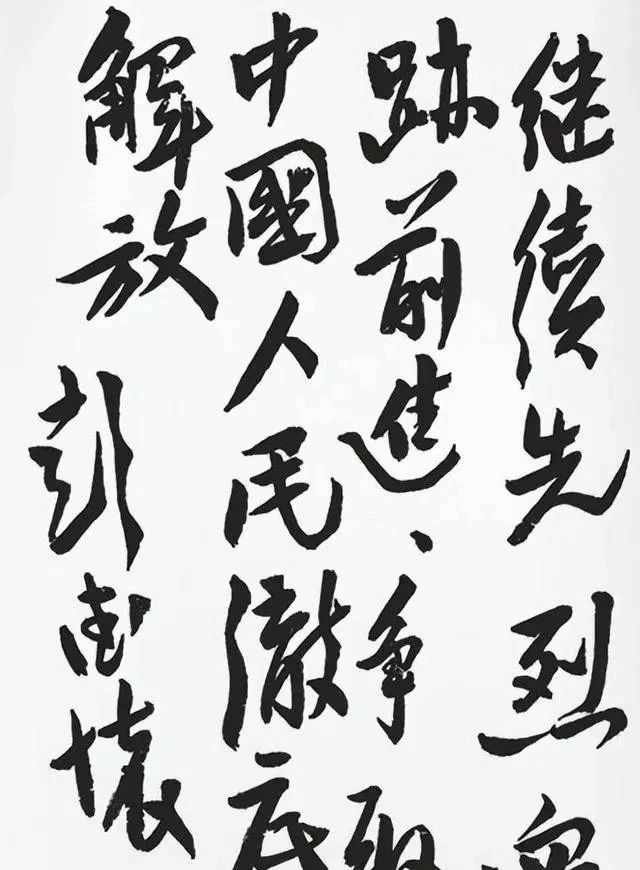 继續先烈
跡前進、争取
中國人民澈底
解放 彭德懷